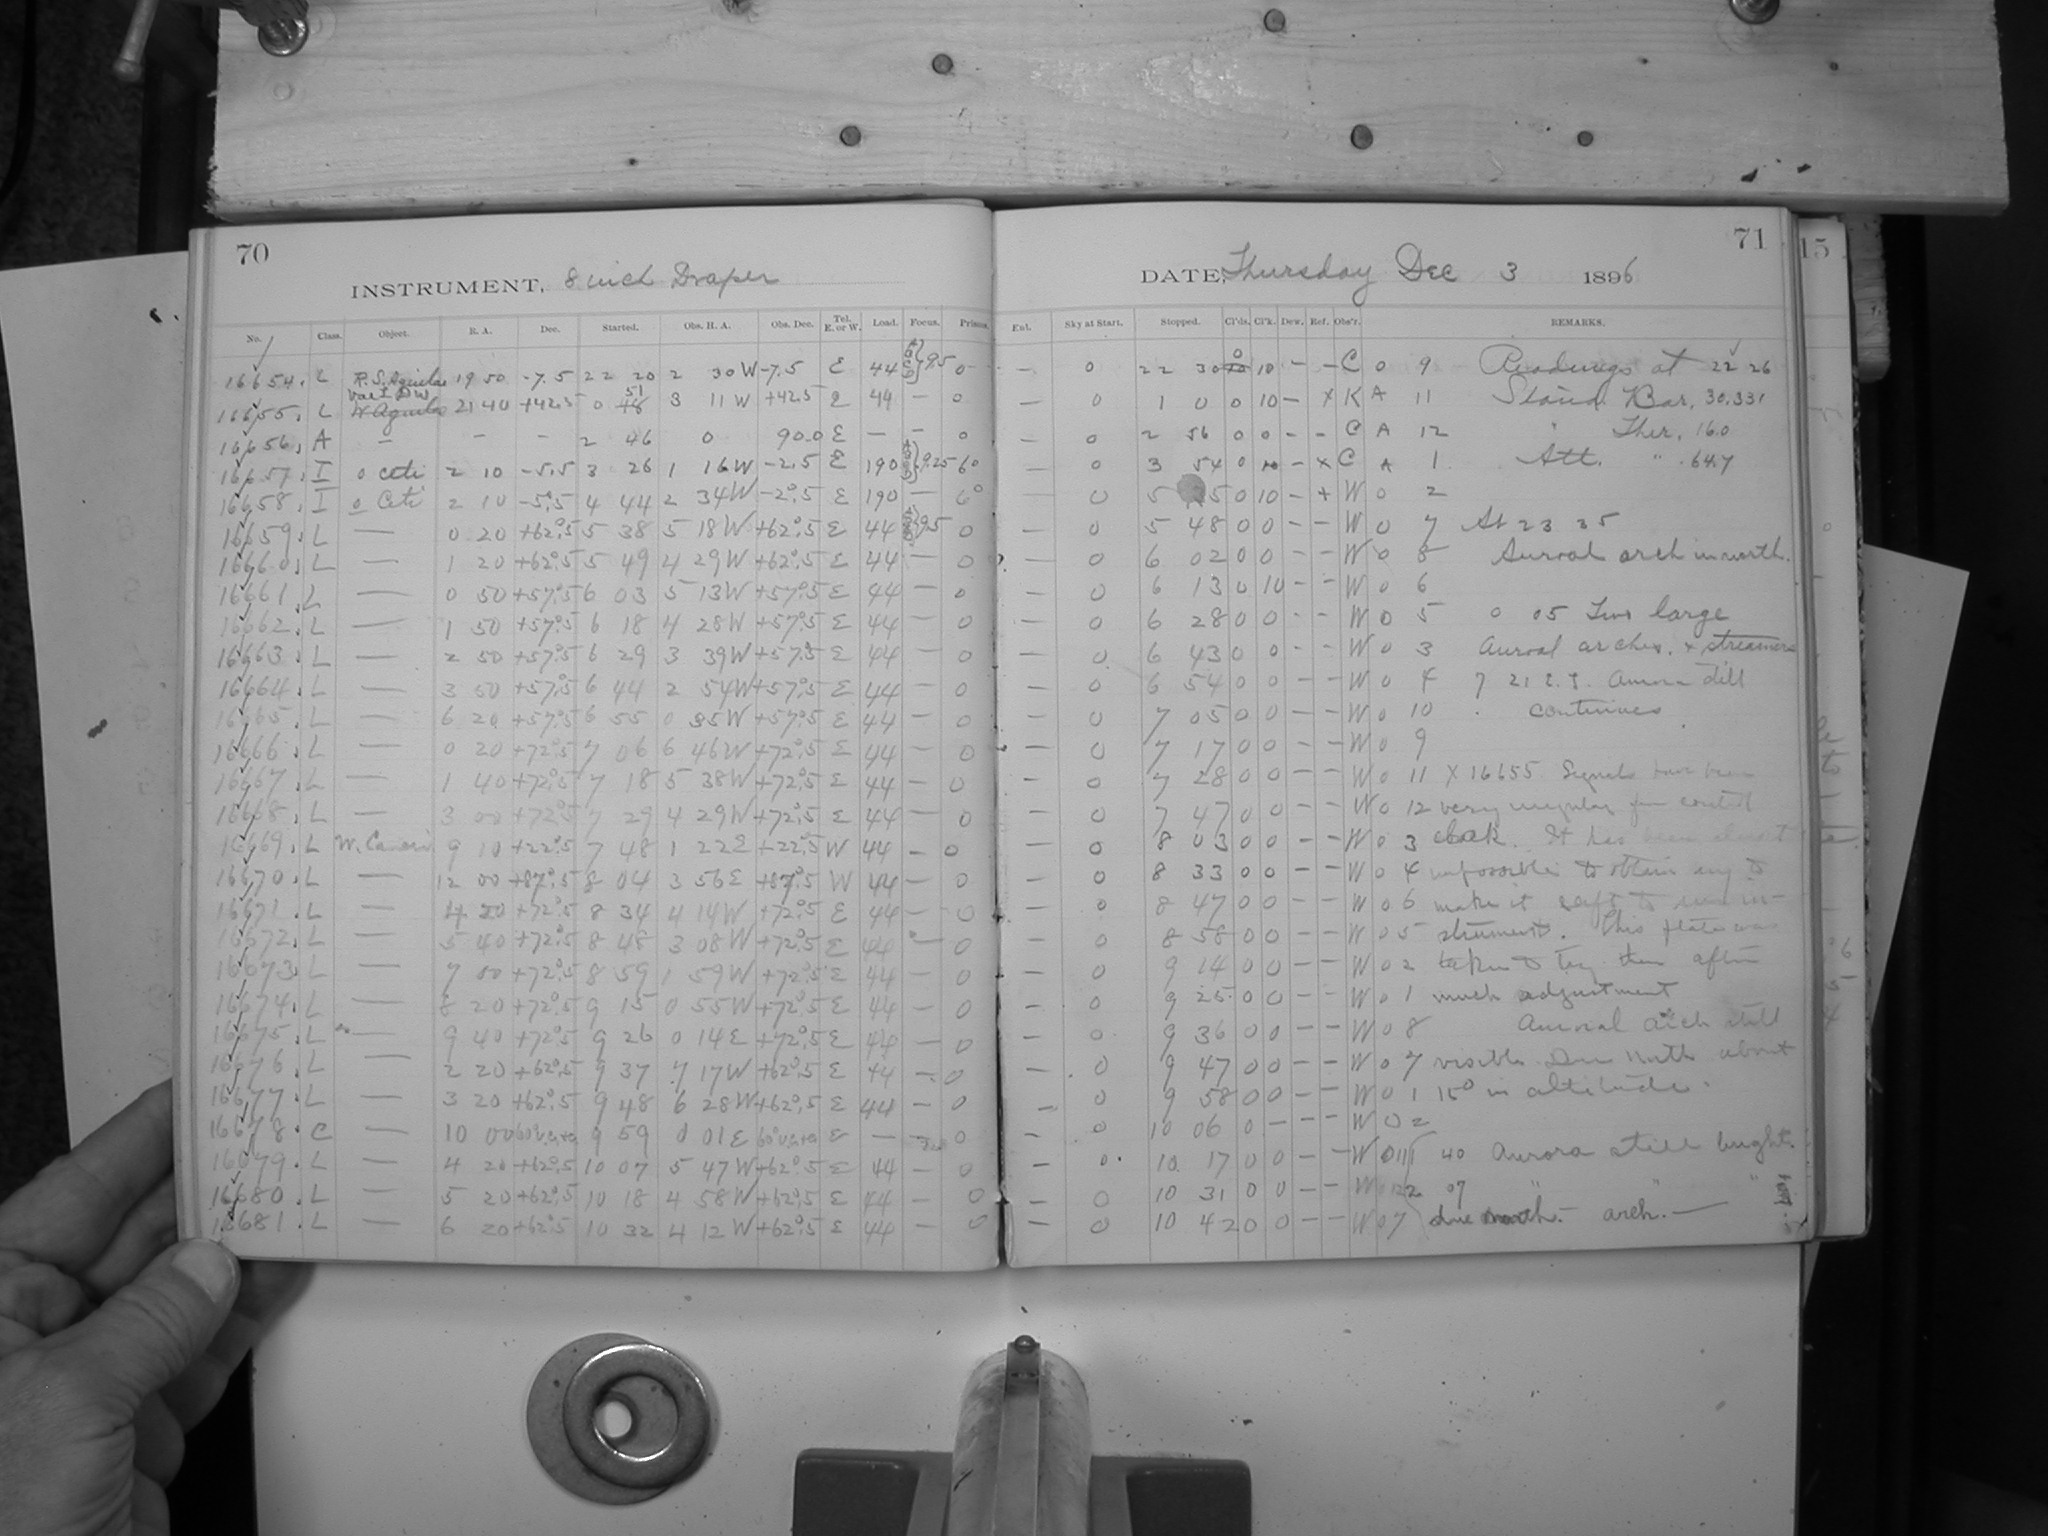 70
INSTRUMENT, 8 inch Draper
No. Class. Object. R. A. Dec. Started. Obs. H. A. Obs. Dec. Tel. E. or W. Load. Focus. Prisms.
16654. L R.S. Aquilae 19 50 -7.5 22 20 2 30 W -7.5 E 44 9.5 0
16655. L W Aquilae 21 40 +42.5 0 51 3 11 W +42.5 E 44 — 0
16656. A — — — 2 46 0 90.0 E — — 0
16657. I o Ceti 2 10 -5.5 3 26 1 16 W -2.5 E 190 9.25 60
16658. I o Ceti 2 10 -5.5 4 44 2 34 W -2°.5 E 190 — 6°
16659. L — 0 20 +62°.5 5 38 5 18 W +62°.5 E 44 9.5 0
16660. L — 1 20 +62°.5 5 49 4 29 W +62°.5 E 44 — 0
16661. L — 0 50 +57°.5 6 03 5 13 W +57°.5 E 44 — 0
16662. L — 1 50 +57°.5 6 18 4 28 W +57°.5 E 44 — 0
16663. L — 2 50 +57°.5 6 29 3 39 W +57°.5 E 44 — 0
16664. L — 3 50 +57°.5 6 44 2 54 W +57°.5 E 44 — 0
16665. L — 6 20 +57°.5 6 55 0 35 W +57°.5 E 44 — 0
16666. L — 0 20 +72°.5 7 06 6 46 W +72°.5 E 44 — 0
16667. L — 1 40 +72°.5 7 18 5 38 W +72°.5 E 44 — 0
16668. L — 3 00 +72°.5 7 29 4 29 W +72°.5 E 44 — 0
16669. L 9 10 +22°.5 7 48 1 22 E +22°.5 W 44 — 0
16670. L — 12 00 +87°.5 8 04 3 56 E +87°.5 W 44 — 0
16671. L — 4 20 +72°.5 8 34 4 14 W +72°.5 E 44 — 0
16672. L — 5 40 +72°.5 8 48 3 08 W +72°.5 E 44 — 0
16673. L — 7 00 +72°.5 8 59 1 59 W +72°.5 E 44 — 0
16674. L — 8 20 +72°.5 9 15 0 55 W +72°.5 E 44 — 0
16675. L — 9 40 +72°.5 9 26 0 14 E +72°.5 E 44 — 0
16676. L — 2 20 +62°.5 9 37 7 17 W +62°.5 E 44 — 0
16677. L — 3 20 +62°.5 9 48 6 28 W +62°.5 E 44 — 0
16678. C — 10 00 9 59 0 01 E E — 0
16679. L — 4 20 +62°.5 10 07 5 47 W +62°.5 E 44 — 0
16680. L — 5 20 +62°.5 10 18 4 58 W +62°.5 E 44 — 0
16681. L — 6 20 +62°.5 10 32 4 12 W +62°.5 E 44 — 0
71
DATE, Thursday Dec 3 1896
Enl. Sky at Start. Stopped. Cl'ds. Cl'k. Dew. Ref. Obs'r. REMARKS.
— 0 22 30 0 10 — — C 0 9 Readings at 22 26
— 0 1 0 0 10 — x K A 11 Stand Bar. 30.331
— 0 2 56 0 0 — — C A 12 " Ther. 16.0
— 0 3 54 0 10 — x C A 1 Att. " 64.7
— 0 5 0 10 — + W 0 2
— 0 5 48 0 0 — — W 0 7 At 23 35
— 0 6 02 0 0 — — W 0 8 Auroal arch in north.
— 0 6 13 0 10 — — W 0 6
— 0 6 28 0 0 — — W 0 5 0 05 Two large
— 0 6 43 0 0 — — W 0 3 Auroal arches. + streamers
— 0 6 54 0 0 — — W 0 4 7 21 Aurora still
— 0 7 05 0 0 — — W 0 10 continues
— 0 7 17 0 0 — — W 0 9
— 0 7 28 0 0 — — W 0 11 X 16655 Signals have been
— 0 7 47 0 0 — — W 0 12 very irregular from control
— 0 8 03 0 0 — — W 0 3 clock. It has been almost
— 0 8 33 0 0 — — W 0 4 impossible to obtain any to
— 0 8 47 0 0 — — W 0 6 make it safe to run in-
— 0 8 58 0 0 — — W 0 5 strument. This plate was
— 0 9 14 0 0 — — W 0 2 taken to try them after
— 0 9 25 0 0 — — W 0 1 much adjustment
— 0 9 36 0 0 — — W 0 8 Auroral arch still
— 0 9 47 0 0 — — W 0 7 visible Due North about
— 0 9 58 0 0 — — W 0 1 15° in altitude.
— 0 10 06 0 — — — W 0 2
— 0 10 17 0 0 — — W 0 11 40 Aurora still bright.
— 0 10 31 0 0 — — W 0 12 07 " " "
— 0 10 42 0 0 — — W 0 7 due north — arch. —
15